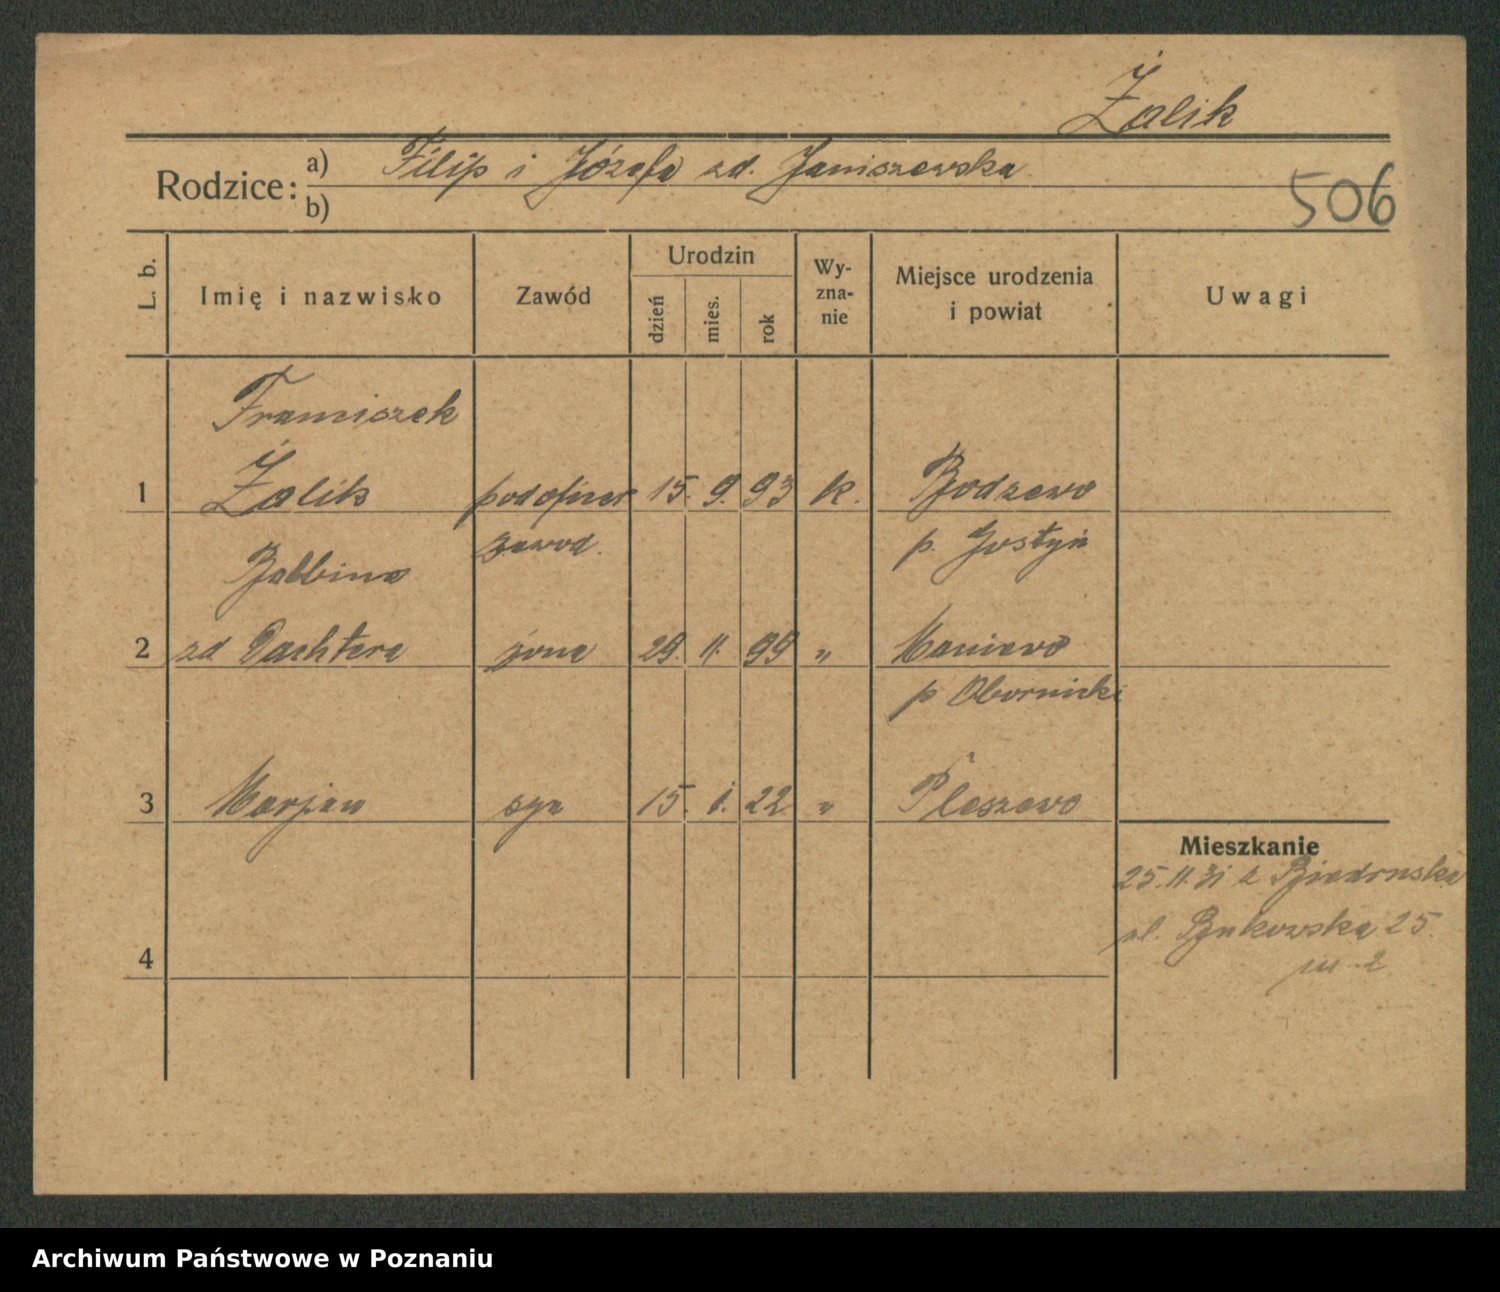 Żalik
Rodzice: a) Filip i Józefa zd. Janiszewska
b)
506
L. b.
Imię i nazwisko
Zawód
Urodzin
dzień
mies.
rok
Wy-
zna-
nie
Miejsce urodzenia
i powiat
Uwagi
Franciszek
1 Żalik podoficer 15. 9. 93 k. Bodzewo
zawod. p. Gostyń
Balbina
2 zd Dachtera żona 29. 11. 99 " Maniewo
p Obornicki
3 Marjan syn 15. 1. 22 " Pleszewo
Mieszkanie
25.11.31 z Biedruska
ul. Bukowska 25.
4
m. 2
Archiwum Państwowe w Poznaniu